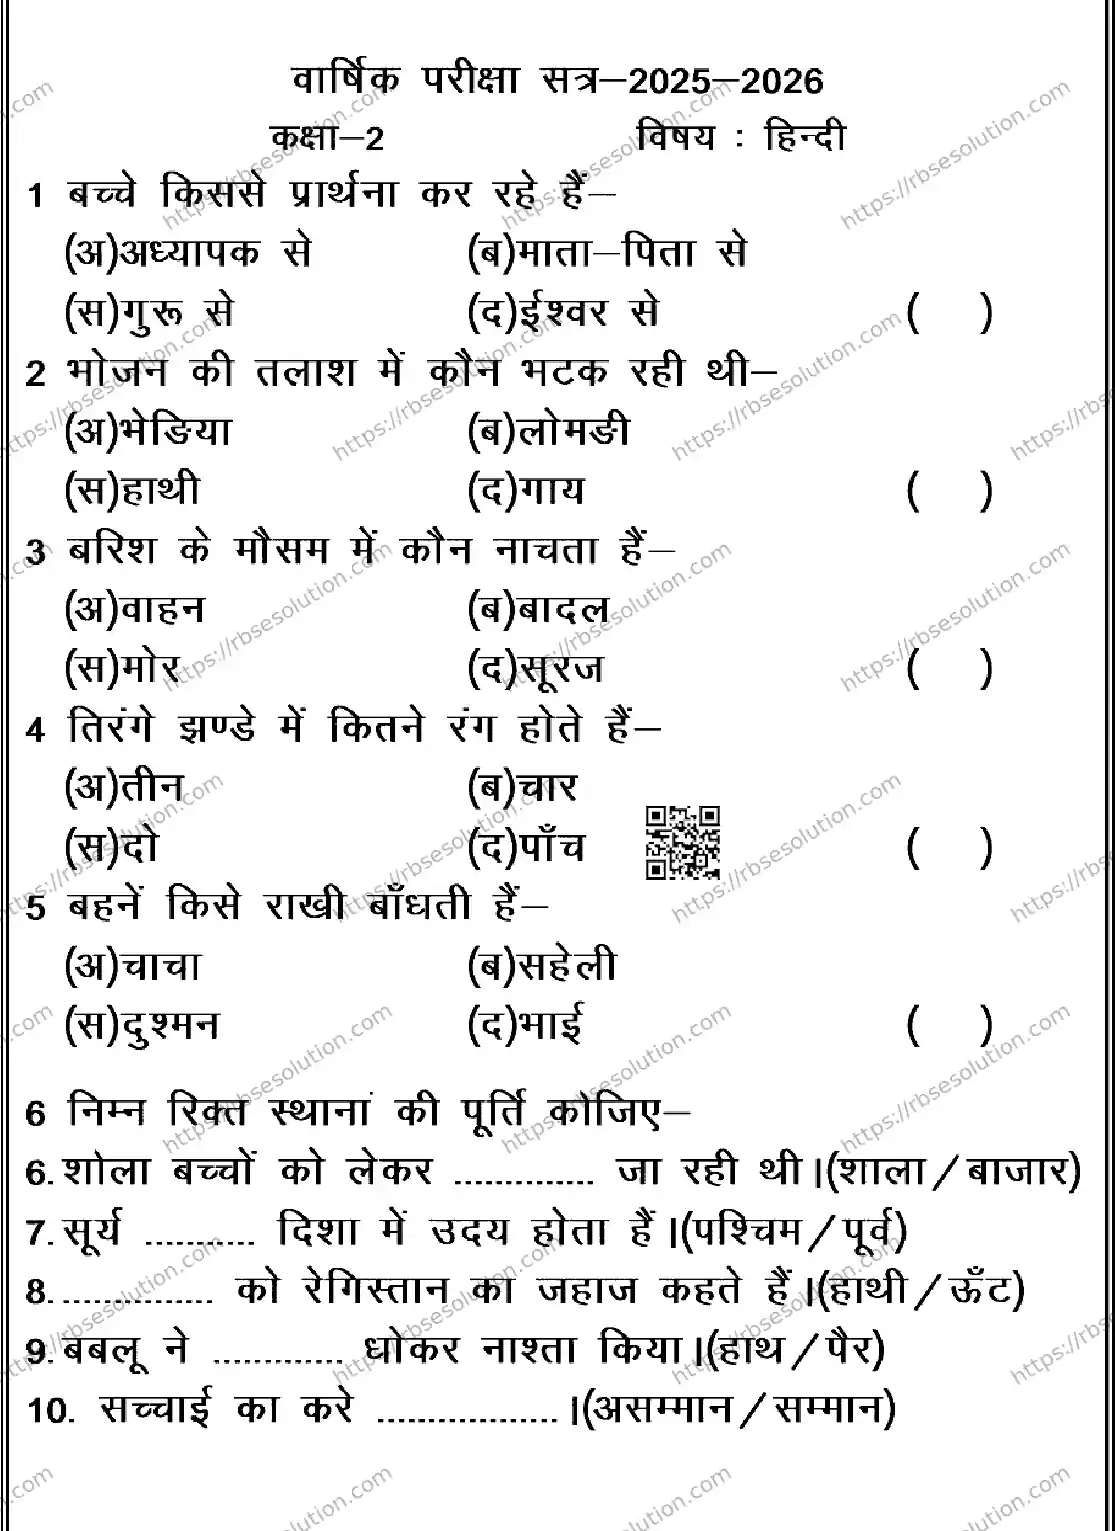 वार्षिक परीक्षा सत्र–2025–2026
कक्षा–2 विषय : हिन्दी
1 बच्चे किससे प्रार्थना कर रहे हैं–
(अ)अध्यापक से (ब)माता–पिता से
(स)गुरू से (द)ईश्वर से ( )
2 भोजन की तलाश में कौन भटक रही थी–
(अ)भेङिया (ब)लोमङी
(स)हाथी (द)गाय ( )
3 बरिश के मौसम में कौन नाचता हैं–
(अ)वाहन (ब)बादल
(स)मोर (द)सूरज ( )
4 तिरंगे झण्डे में कितने रंग होते हैं–
(अ)तीन (ब)चार
(स)दो (द)पाँच ( )
5 बहनें किसे राखी बाँधती हैं–
(अ)चाचा (ब)सहेली
(स)दुश्मन (द)भाई ( )
6 निम्न रिक्त स्थानां की पूर्ति कोजिए–
6. शोला बच्चों को लेकर .............. जा रही थी।(शाला/बाजार)
7. सूर्य ........... दिशा में उदय होता हैं।(पश्चिम/पूर्व)
8. ............... को रेगिस्तान का जहाज कहते हैं।(हाथी/ऊँट)
9. बबलू ने ............. धोकर नाश्ता किया।(हाथ/पैर)
10. सच्चाई का करे .................. ।(असम्मान/सम्मान)
https://rbsesolution.com